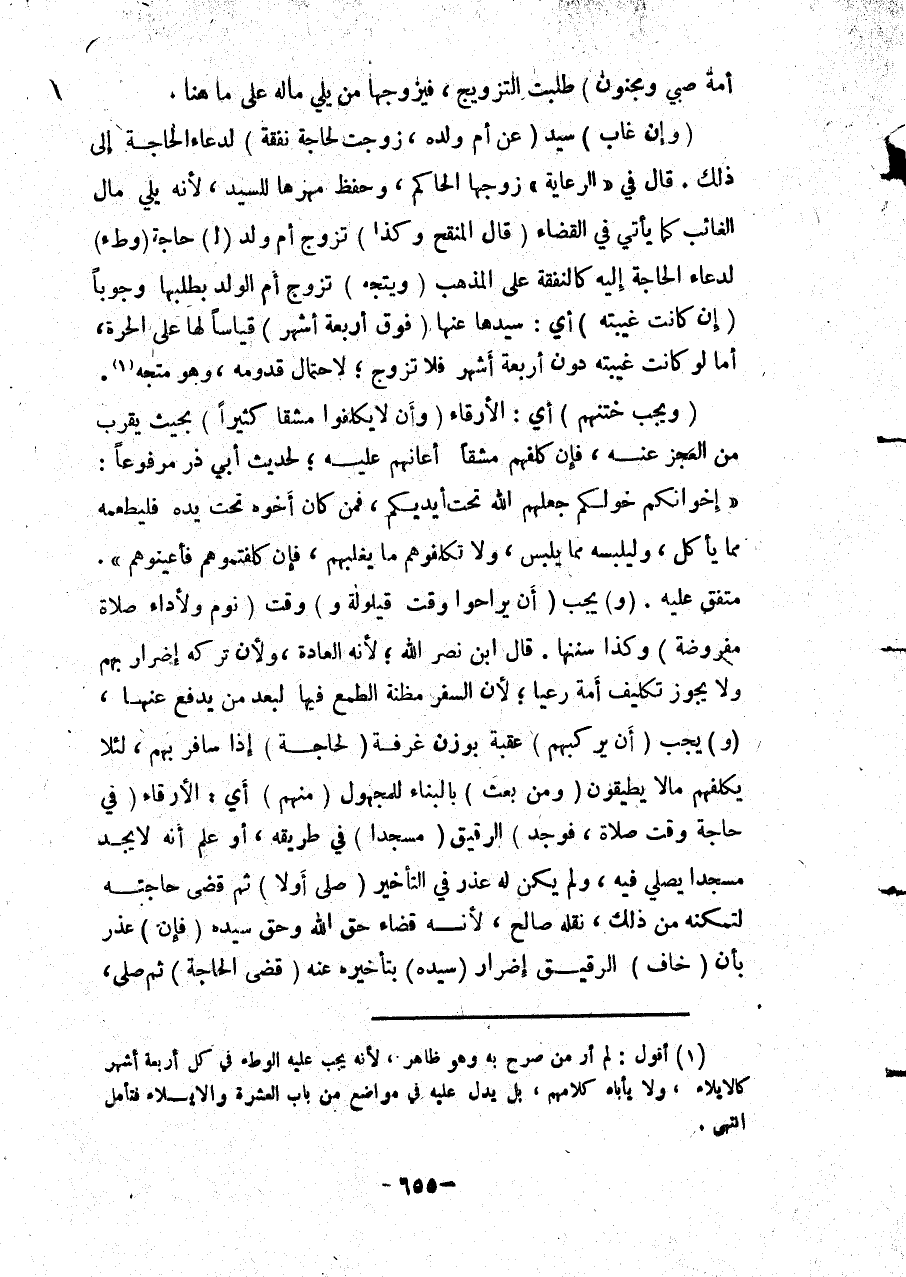 أمةُ صبي ومجنون ) طلبت التزويج ، فيزوجها من يلي ماله على ما هنا .
( وإن غاب ) سيد ( عن أم ولده ، زوجت لحاجة نفقة ) لدعاء الحاجـــة إلى
ذلك . قال في « الرعاية » زوجها الحاكم ، وحفظ مهرها للسيد ، لأنه يلي مال
الغائب كما يأتي في القضاء ( قال المنقح وكذا ) تزوج أم ولد ( لـ ) حاجة (وطء)
لدعاء الحاجة إليه كالنفقة على المذهب ( ويتجه ) تزوج أم الولد بطلبها وجوباً
( إن كانت غيبته ) أي : سيدها عنها ( فوق أربعة أشهر ) قياساً لها على الحرة،
أما لو كانت غيبته دون أربعة أشهر فلا تزوج ؛ لاحتمال قدومه ، وهو متجه (١) .
( ويجب ختنهم ) أي : الأرقاء ( وأن لا يكلفوا مشقا كثيراً ) بحيث يقرب
من العجز عنـــه ، فإن كلفهم مشقاً أعانهم عليـــه ؛ لحديث أبي ذر مرفوعاً :
« إخوانكم خولكم جعلهم الله تحت أيديكم ، فمن كان أخوه تحت يده فليطعمه
مما يأكل ، وليلبسه مما يلبس ، ولا تكلفوهم ما يغلبهم ، فإن كلفتموهم فأعينوهم » .
متفق عليه . (و) يجب ( أن يراحوا وقت قيلولة و ) وقت ( نوم ولأداء صلاة
مفروضة ) وكذا سننها . قال ابن نصر الله ؛ لأنه العادة ، ولأن تركه إضرار بهم
ولا يجوز تكليف أمة رعيا ؛ لأن السفر مظنة الطمع فيها لبعد من يدفع عنهـا ،
(و) يجب ( أن يركبهم ) عقبة بوزن غرفـة ( لحاجـــة ) إذا سافر بهم ، لئلا
يكلفهم مالا يطيقون ( ومن بعث ) بالبناء للمجهول ( منهم ) أي : الأرقاء ( في
حاجة وقت صلاة ، فوجد ) الرقيق ( مسجدا ) في طريقه ، أو علم أنه لا يجـد
مسجدا يصلي فيه ، ولم يكن له عذر في التأخير ( صلى أولا ) ثم قضى حاجتـــه
لتمكنه من ذلك ، نقله صالح ، لأنـــه قضاء حق الله وحق سيده ( فإن ) عذر
بأن ( خاف ) الرقيـــق إضرار (سيده) بتأخيره عنه ( قضى الحاجة ) ثم صلى،
(١) أقول : لم أر من صرح به وهو ظاهر ، لأنه يجب عليه الوطء في كل أربعة أشهر
كالايلاء ، ولا يأباه كلامهم ، بل يدل عليه في مواضع من باب العشرة والايـــلاء فتأمل
انتهى .
-٦٥٥-